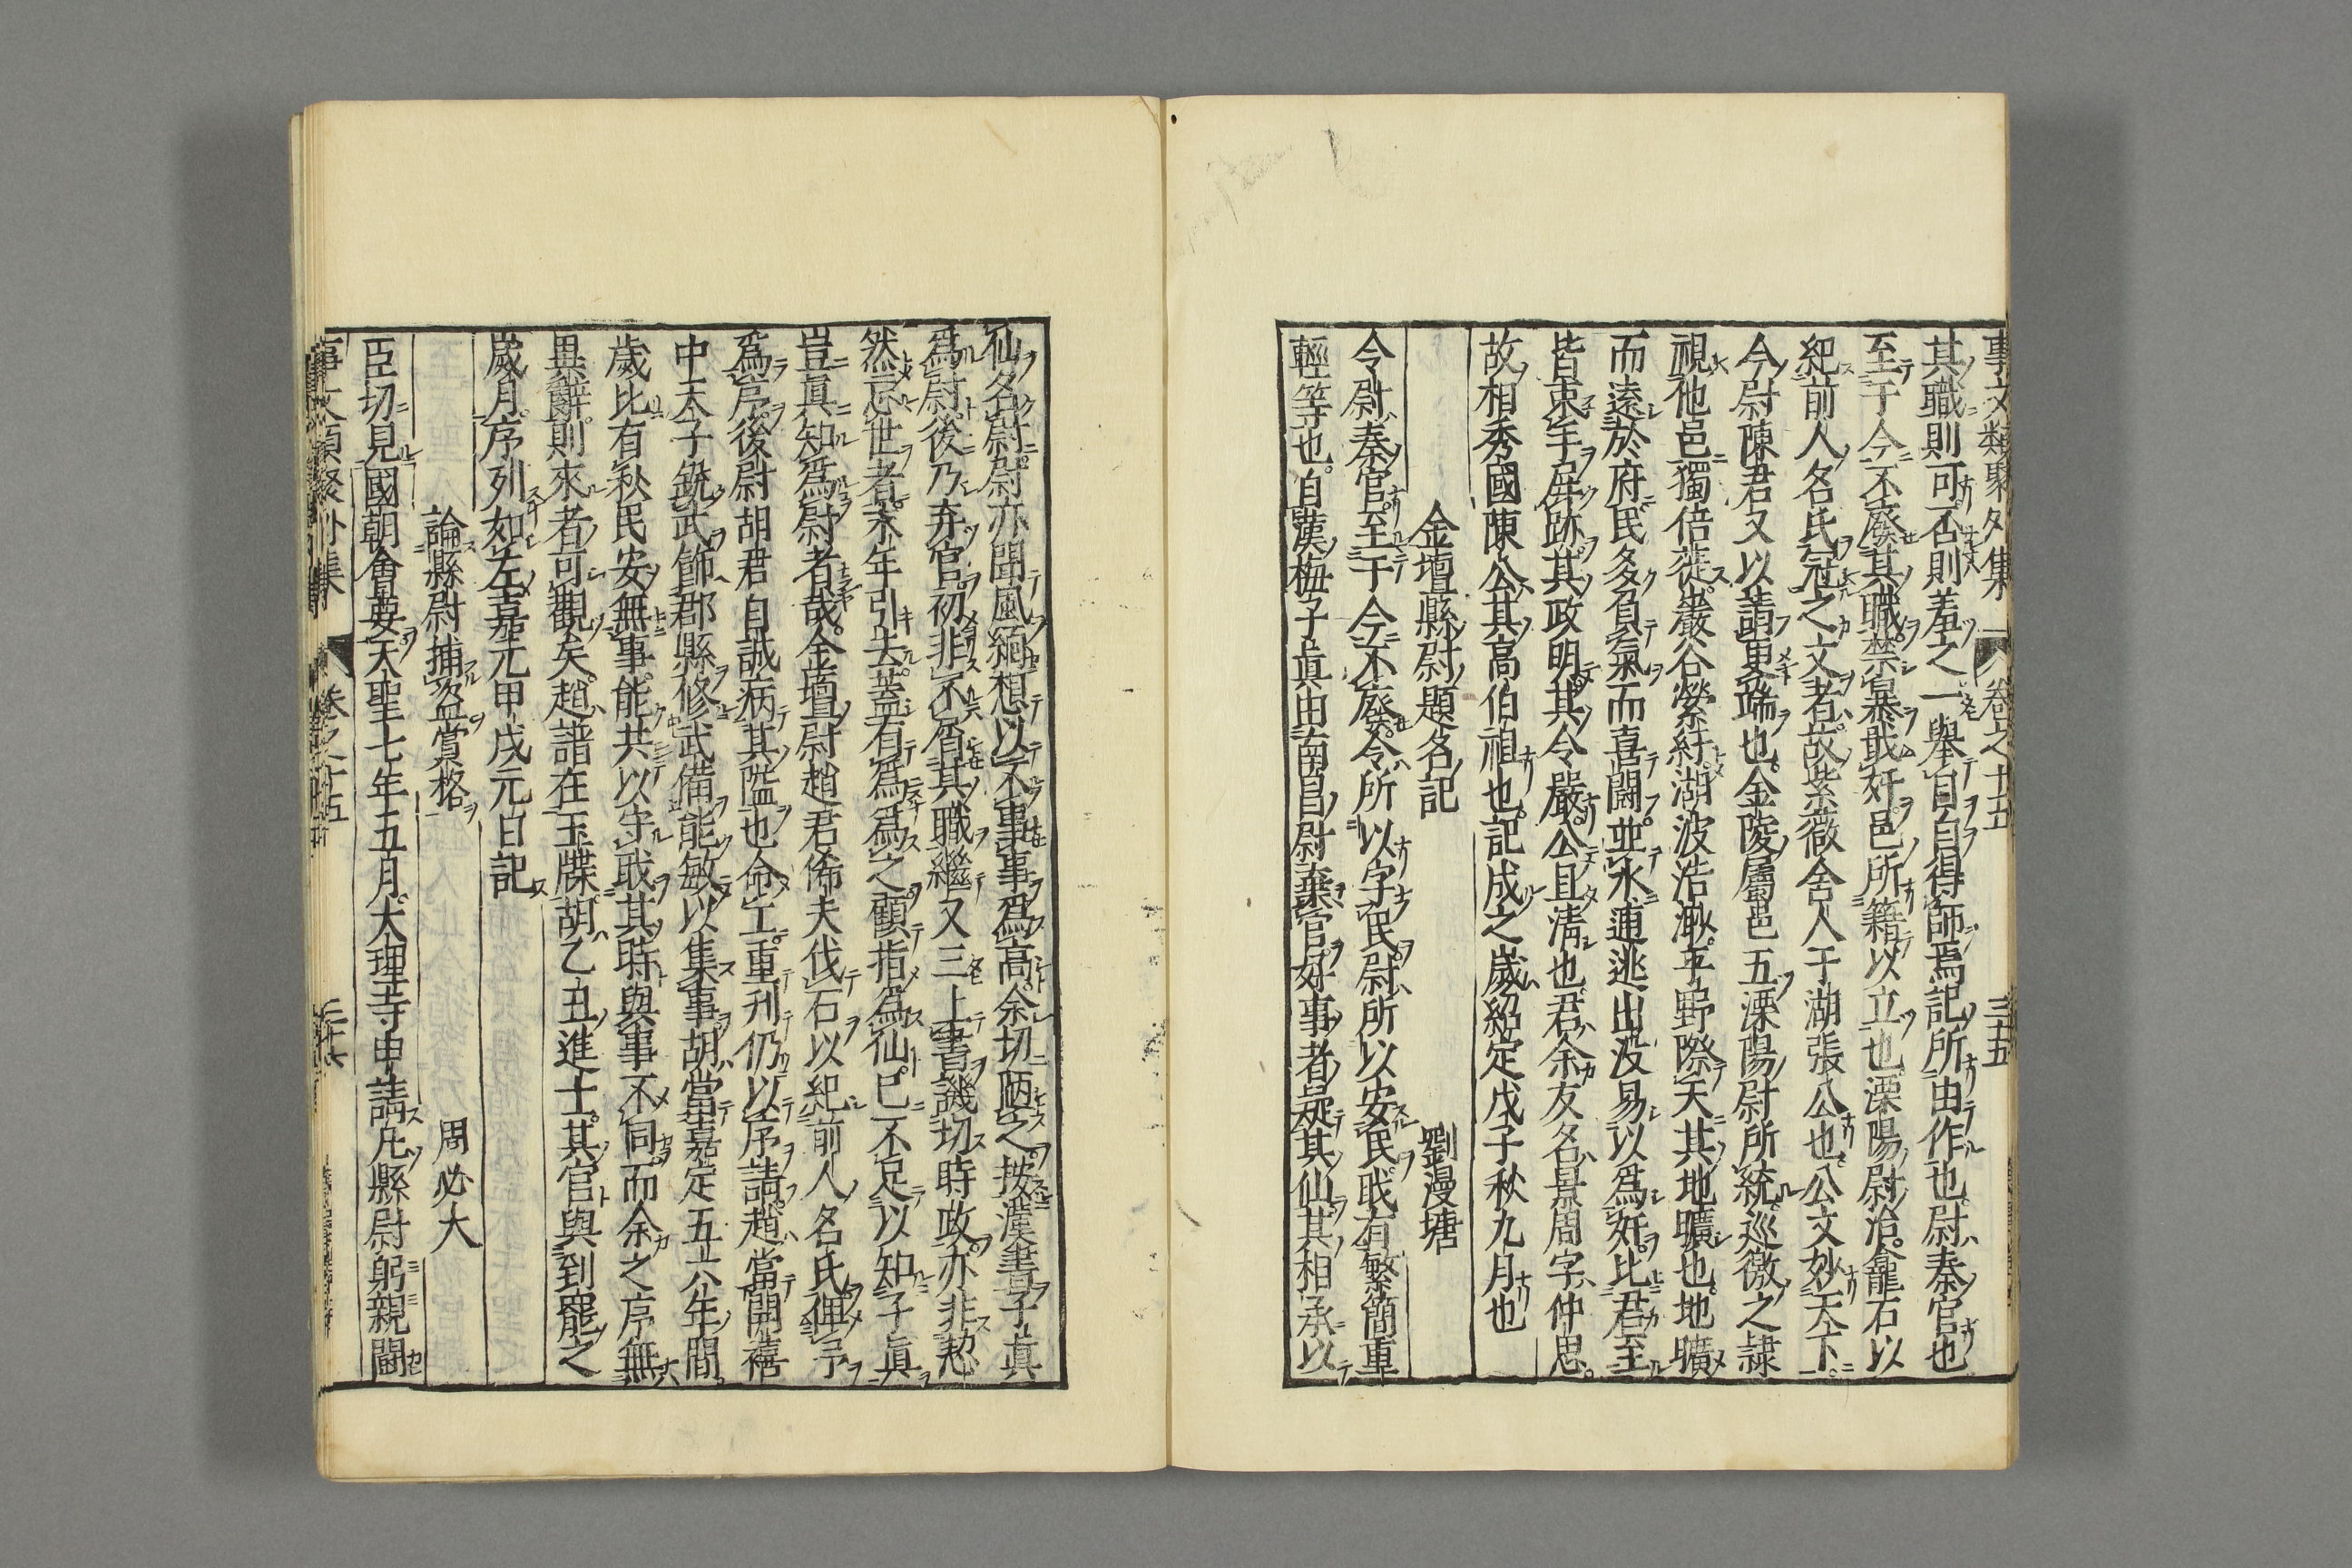 事文類聚外集 卷之十五 三五
其職則可否則羞之一舉自自得師焉記所由作也尉秦官也
至于今不廢其職禁暴戢奸邑所籍以立也溧陽尉治龕石以
紀前人名氏冠之文者故紫薇舍人于湖張公也公文妙天下
今尉陳君又以請更端也金陵屬邑五溧陽尉所統巡徼之隸
視他邑獨倍蓰巖谷縈紆湖波浩渺平野際天其地曠也地曠
而遠於府民多負氣而喜鬪並水逋逃出没易以爲奸比君至
皆束手屏跡其政明其令嚴公且淸也君余友名景周字仲思
故相秀國陳公其高伯祖也記成之歲紹定戊子秋九月也
金壇縣尉題名記 劉漫塘
令尉秦官至于今不廢令所以字民尉所以安民戢有繁簡重
輕等也自漢梅子眞由南昌尉棄官好事者疑其仙其相承以
仙名尉尉亦聞風緬想以不事事爲高余切陋之按漢書子眞
爲尉後乃弃官初非不屑其職繼又三上書譏切時政亦非恝
然忘世者末年引去蓋有爲爲之顧指爲仙已不足以知子眞
豈眞知爲尉者哉金壇尉趙君俙夫伐石以紀前人名氏俾予
爲序後尉胡君自誠病其隘也命工重刊仍以序請趙當開禧
中天子銳武節郡縣修武備能敏以集事胡當嘉定五六年間
歲比有秋民安無事能共以守戢其時與事不同而余之序無
異辭則來者可觀矣趙譜在玉牒胡乙丑進士其官與到罷之
歲月序列如左嘉元甲戌元日記
論縣尉捕盜賞格 周必大
臣切見國朝會要天聖七年五月大理寺申請凡縣尉躬親鬪
事文類聚外集 卷之十五 三十六